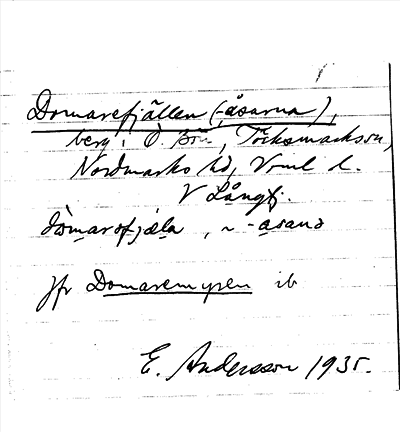 Domarefjällen (-åsarna),
berg i Ö. Bön, Töcksmarks sn,
Nordmarks hd, Vrml l.
V Långtj.
dòmarəfjæla, ~ -asanə
Jfr Domaremyren ib
E. Andersson 1935.